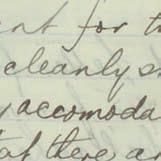 nt for t
cleanly s
accomoda
at there a